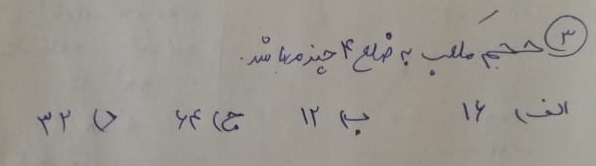 ۳ حجم مکعب به ضلع ۴ چند می باشد.
الف) ۱۶ ب) ۱۲ ج) ۶۴ د) ۳۲